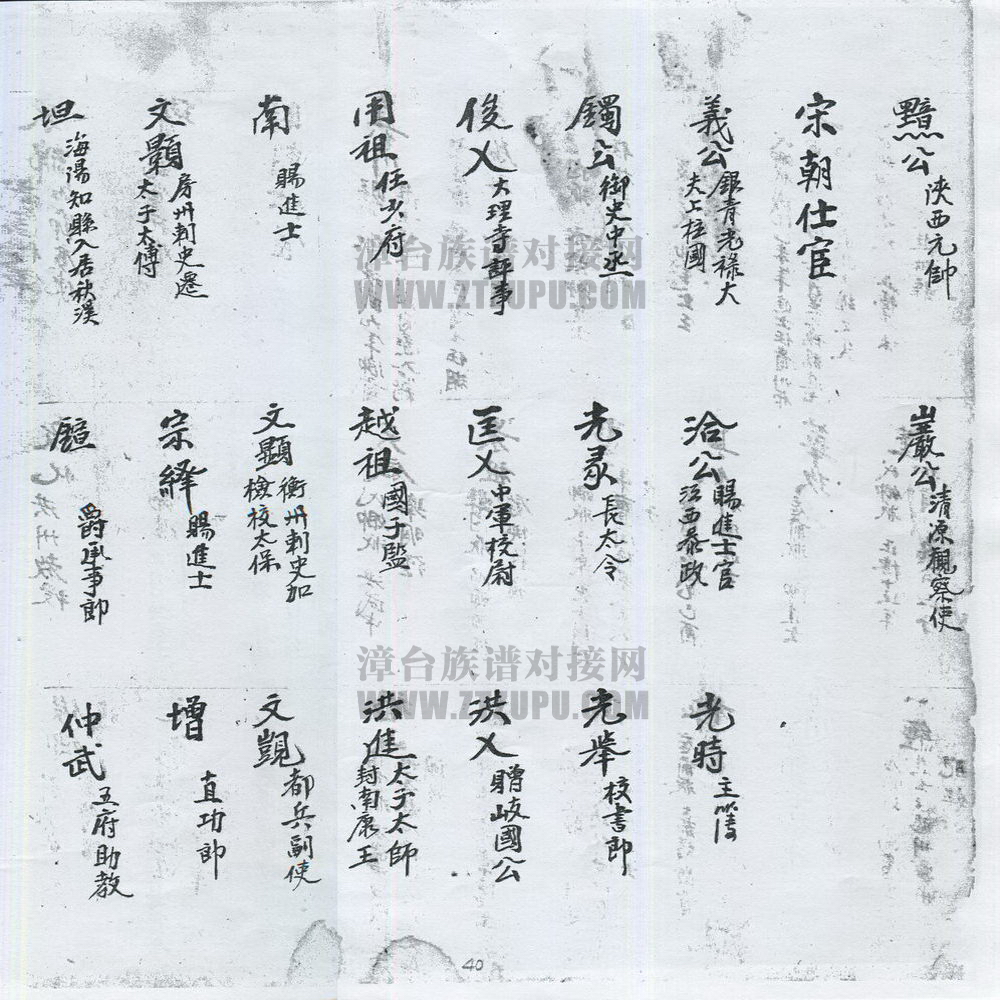 黯公 陝西元帥
巖公 清源觀察使
宋朝仕宦
義公 銀青光祿大夫上柱國
洽公 賜進士官江西泰政
光時 主簿
鐲公 御史中丞
光彔 長太令
光舉 校書郎
俊乂 大理寺評事
匡乂 中軍校尉
洪乂 贈岐國公
用祖 任少府
越祖 國子監
洪進 太子太師封南康王
南 賜進士
文顯 衡州刺史加檢校太保
文覬 都兵副使
文顥 房州刺史遷太子太傅
宗繹 賜進士
增 直功郎
坦 海陽知縣入居秋溪
爵承事郎
仲武 五府助教
漳台族谱对接网
WWW.ZTZUPU.COM
漳台族谱对接网
WWW.ZTZUPU.COM
40